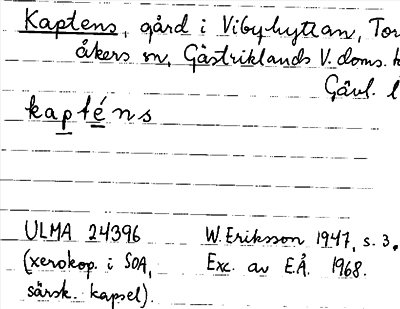 Kaptens, gård i Vibyhyttan, Tor
åkers sn, Gästriklands V. doms. h
Gävl. l
kapténs
ULMA 24396 W. Eriksson 1947, s. 3.
(xerokop. i SOA, Exc. av E.Å. 1968.
särsk. kapsel).